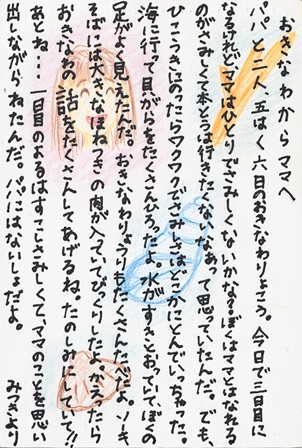 おきなわからママへ
パパと二人、五はく六日のおきなわりょこう。今日で三日目に
なるけれど、ママはひとりでさみしくないかな？ぼくはママとはなれる
のがさみしくて本とうは行きたくないなあって思っていたんだ。でも
ひこうきにのったらワクワクでさみしさはどこかにとんでいっちゃった。
海に行って貝がらをたくさんひろったよ。水がすきとおっていて、ぼくの
足がよく見えたんだ。おきなわりょうりもたくさんたべたよ。ソーキ
そばには大きなほねつきの肉が入っていてびっくりしたよ。かえったら
おきなわの話をたくさんしてあげるね。たのしみにしてて!!
あとね…一日目のよるはすこしさみしくて、ママのことを思い
出しながらねたんだ。パパにはないしょだよ。 みつきより